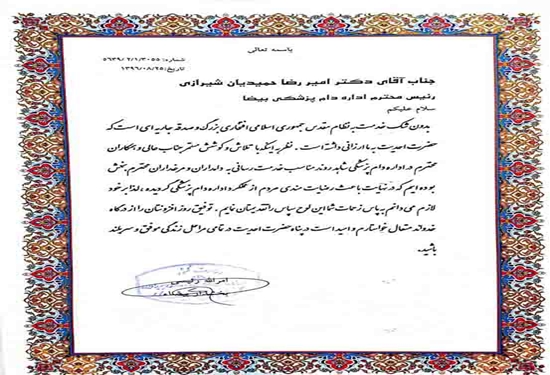 باسمه تعالی
شماره: ۵۶۳۹/۲/۱/۳۰۵۵
تاریخ: ۱۳۹۶/۰۸/۲۵
جناب آقای دکتر امیر رضا حمیدیان شیرازی
رئیس محترم اداره دام پزشکی بیضا
سلام علیکم
بدون شک خدمت به نظام مقدس جمهوری اسلامی افتخاری بزرگ و صدقه جاریه ای است که
حضرت احدیت به ما ارزانی داشته است. نظر به اینکه با تلاش و کوشش مستمر جناب عالی و همکاران
محترم در اداره دام پزشکی شاهد روند مناسب خدمت رسانی به دامداران و مرغداران محترم بخش
بوده ایم که در نهایت باعث رضایت مندی مردم از عملکرد اداره دام پزشکی گردیده، لذا بر خود
لازم می دانم به پاس زحمات شما این لوح سپاس را تقدیمتان نمایم. توفیق روز افزونتان را از درگاه
خداوند متعال خواستارم و امید است در پناه حضرت احدیت در تمامی مراحل زندگی موفق و سربلند
باشید.
امراله رئیسی
بخشدار بیضاء